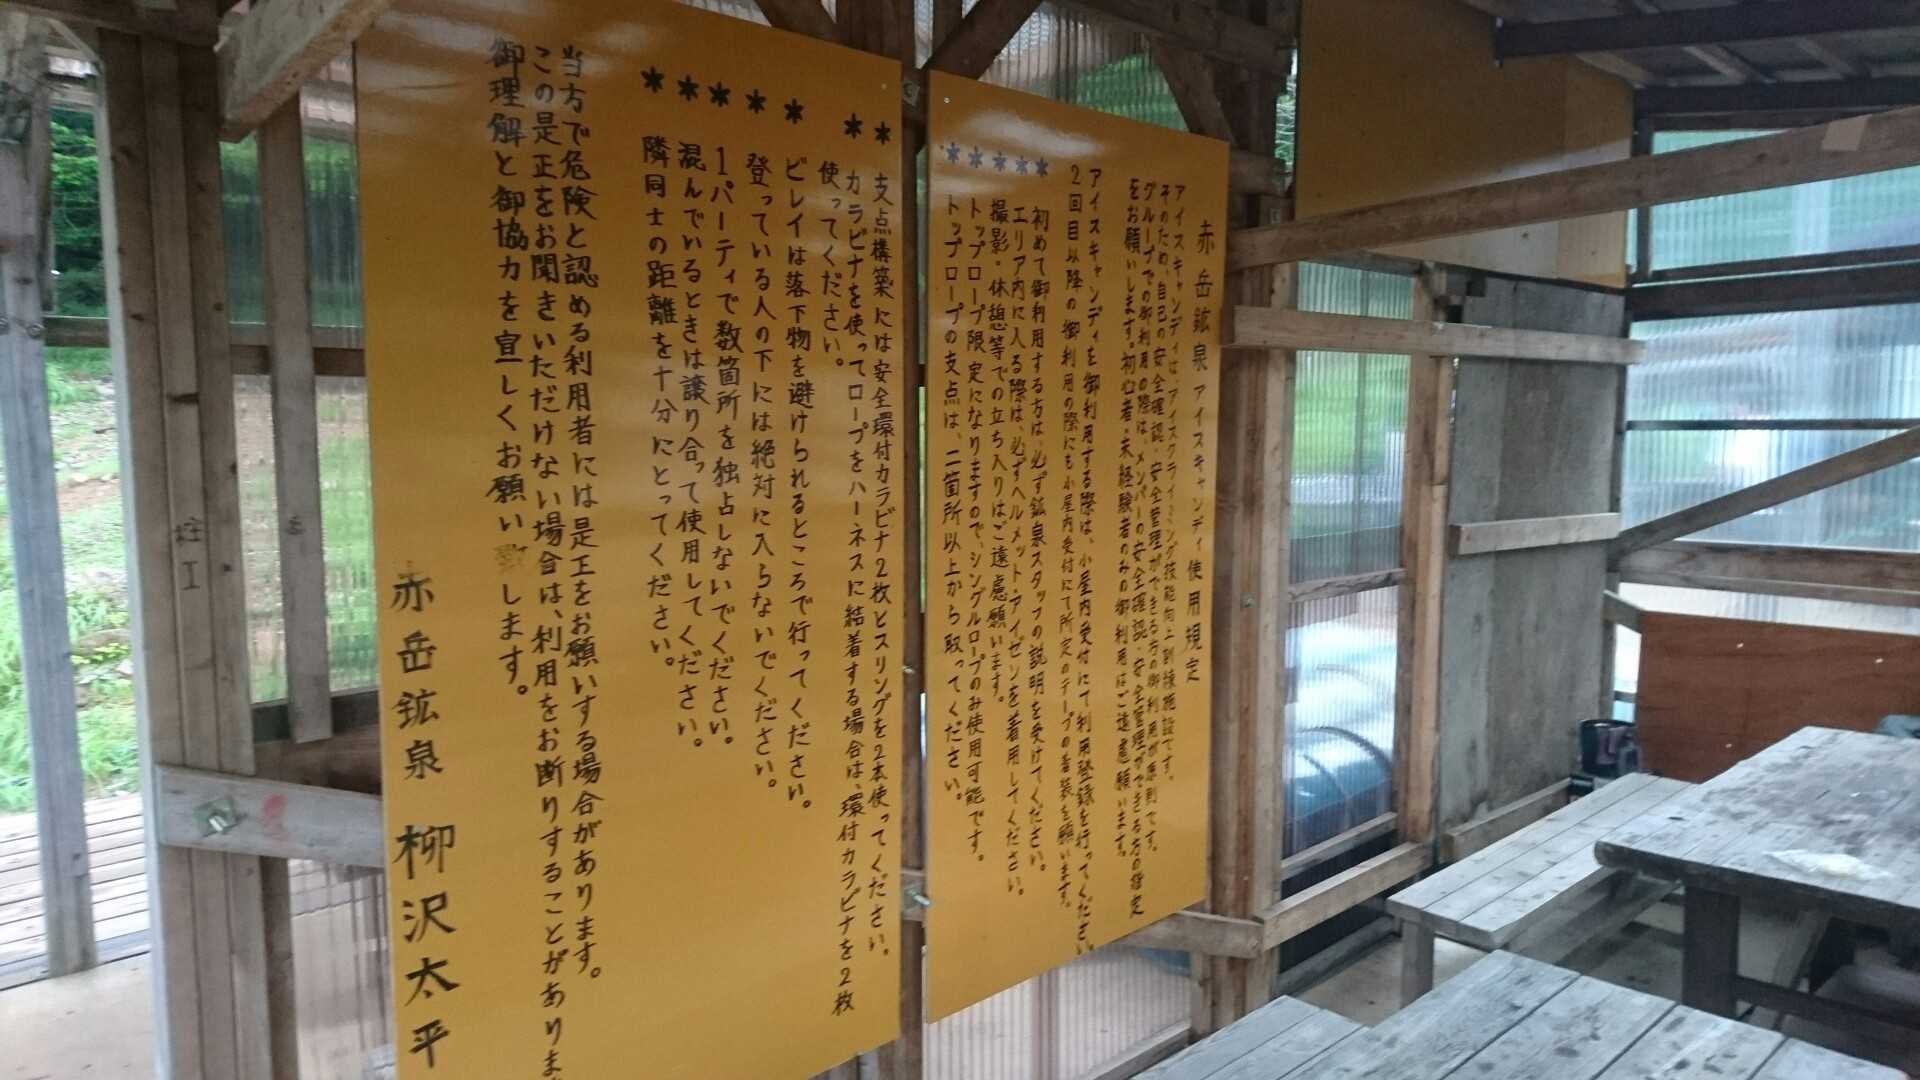 赤岳鉱泉アイスキャンディ使用規定
アイスキャンディは、アイスクライミング技能向上訓練施設です。
そのため、自己の安全確認・安全管理ができる方の御利用が原則です。
グループでの御利用の際は、メンバーの安全確認・安全管理ができる方の指定
をお願いします。初心者・未経験者のみの御利用はご遠慮願います。
アイスキャンディを御利用する際は、小屋内受付にて利用登録を行ってください。
2回目以降の御利用の際にも小屋内受付にて所定のテープの着装を願います。
* 初めて御利用する方は、必ず鉱泉スタッフの説明を受けてください。
* エリア内に入る際は、必ずヘルメット・アイゼンを着用してください。
* 撮影・休憩等での立ち入りはご遠慮願います。
* トップロープ限定になりますので、シングルロープのみ使用可能です。
* トップロープの支点は、二箇所以上から取ってください。
* 支点構築には安全環付カラビナ2枚とスリングを2本使ってください。
* カラビナを使ってロープをハーネスに結着する場合は、環付カラビナを2枚
使ってください。
* ビレイは落下物を避けられるところで行ってください。
* 登っている人の下には絶対に入らないでください。
* 1パーティで数箇所を独占しないでください。
* 混んでいるときは譲り合って使用してください。
* 隣同士の距離を十分にとってください。
当方で危険と認める利用者には是正をお願いする場合があります。
この是正をお聞きいただけない場合は、利用をお断りすることがありま
御理解と御協力を宜しくお願い致します。
赤岳鉱泉 柳沢太平